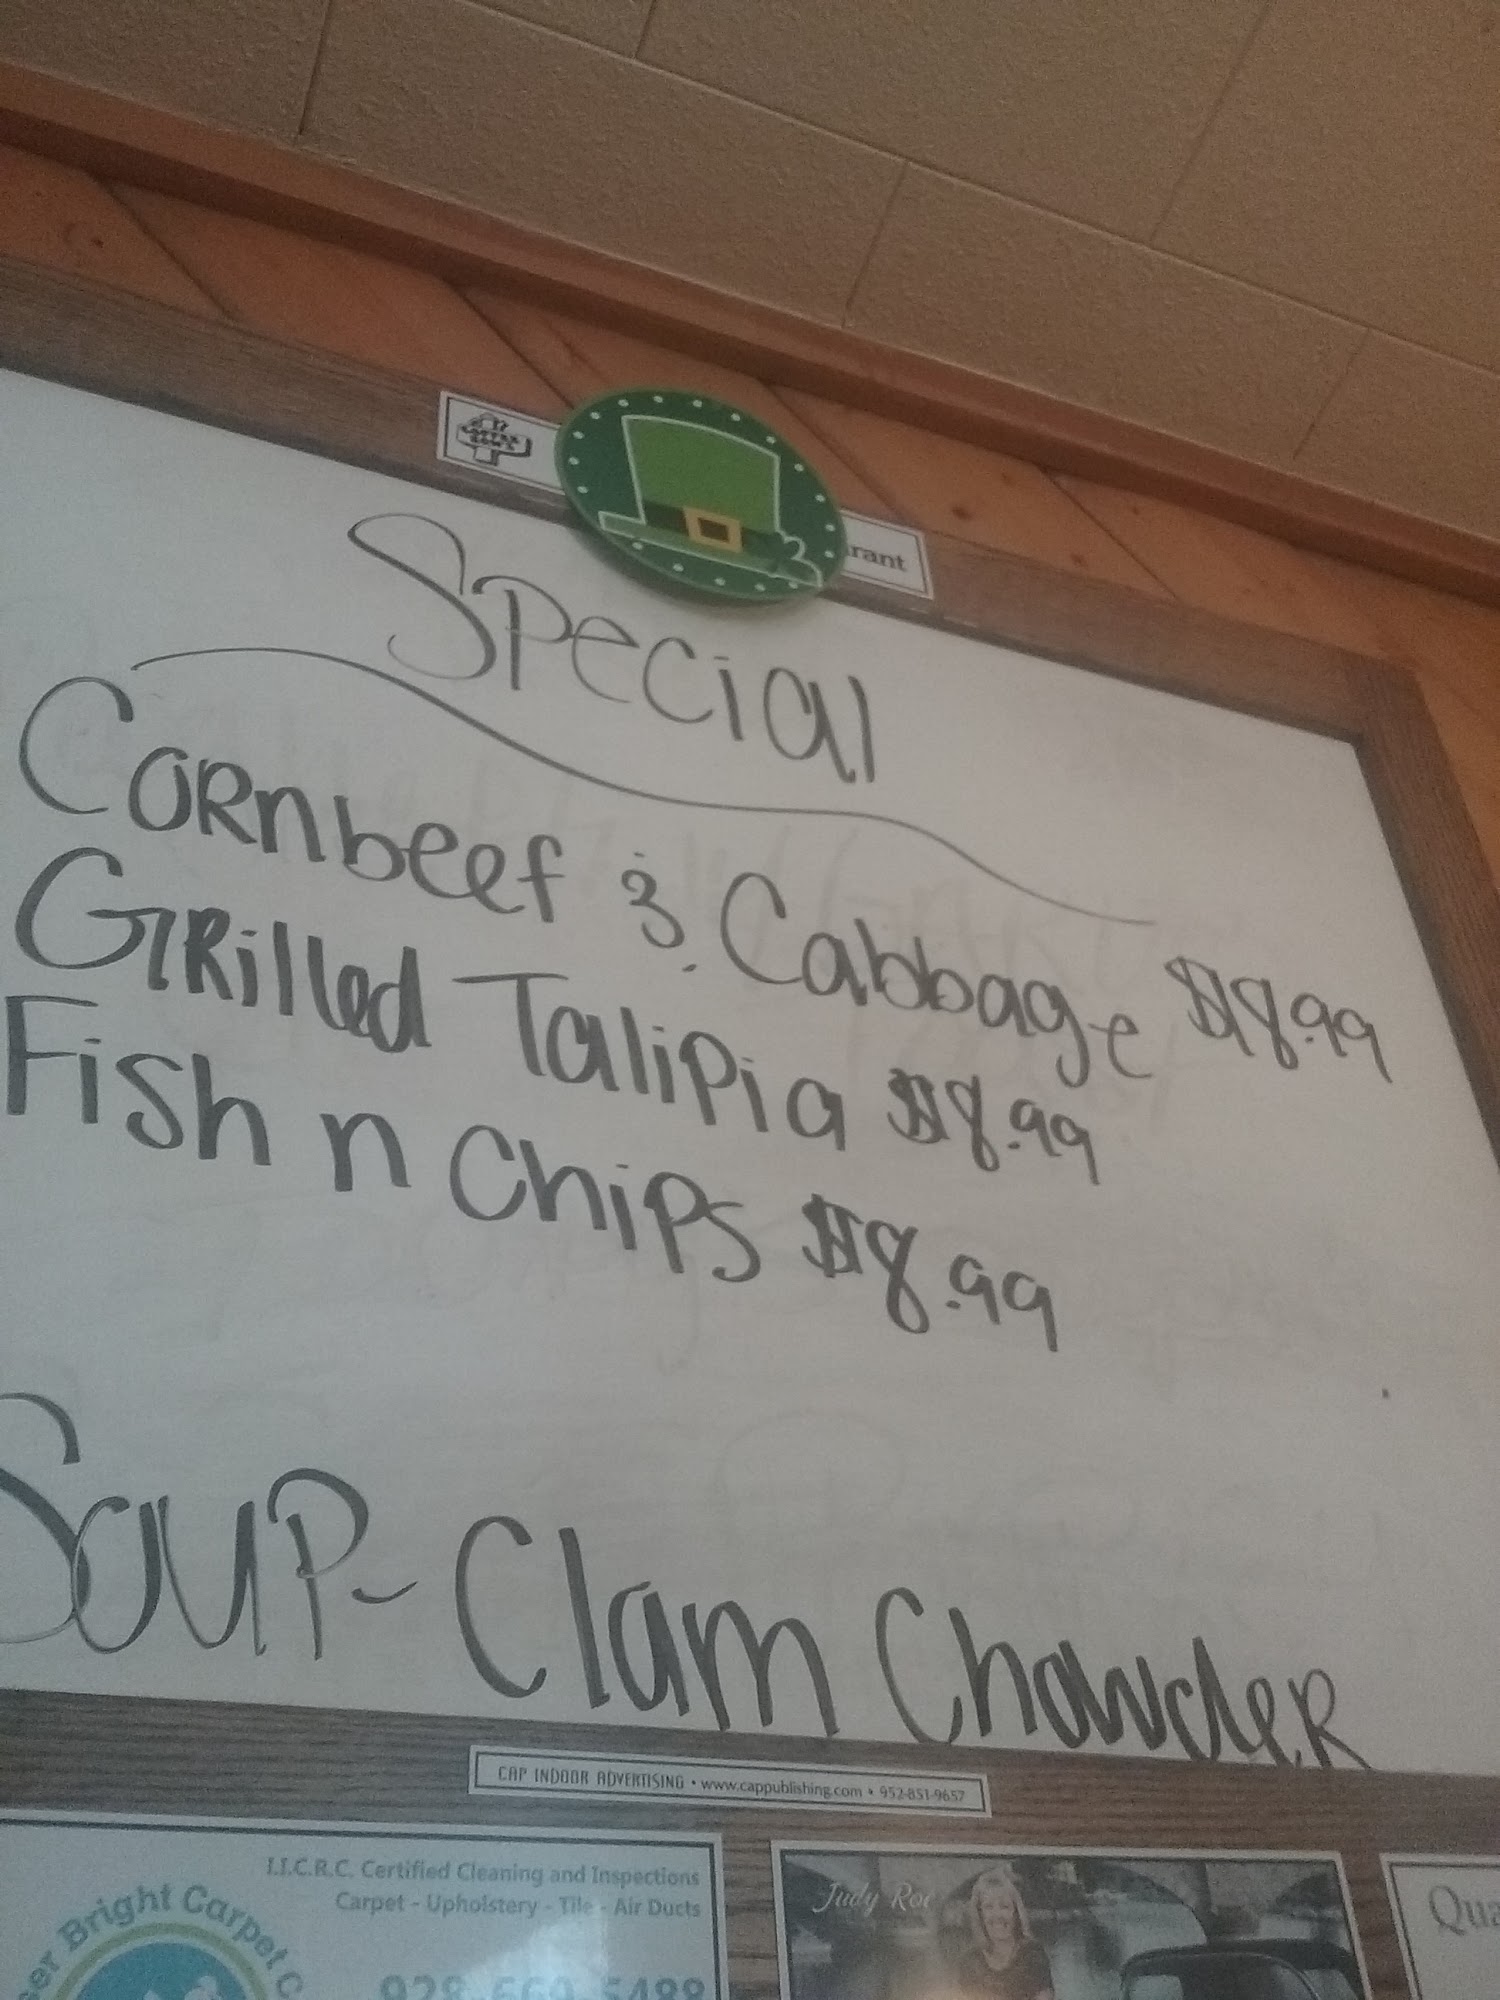 rant
Special
Cornbeef & Cabbage $8.99
Grilled Talipia $8.99
Fish n Chips $8.99
Soup - Clam Chowder
CAP INDOOR ADVERTISING • www.cappublishing.com • 952-851-9657
I.I.C.R.C. Certified Cleaning and Inspections
Carpet - Upholstery - Tile - Air Ducts
Bright Carpet C
928-669-5488
Judy
Qua